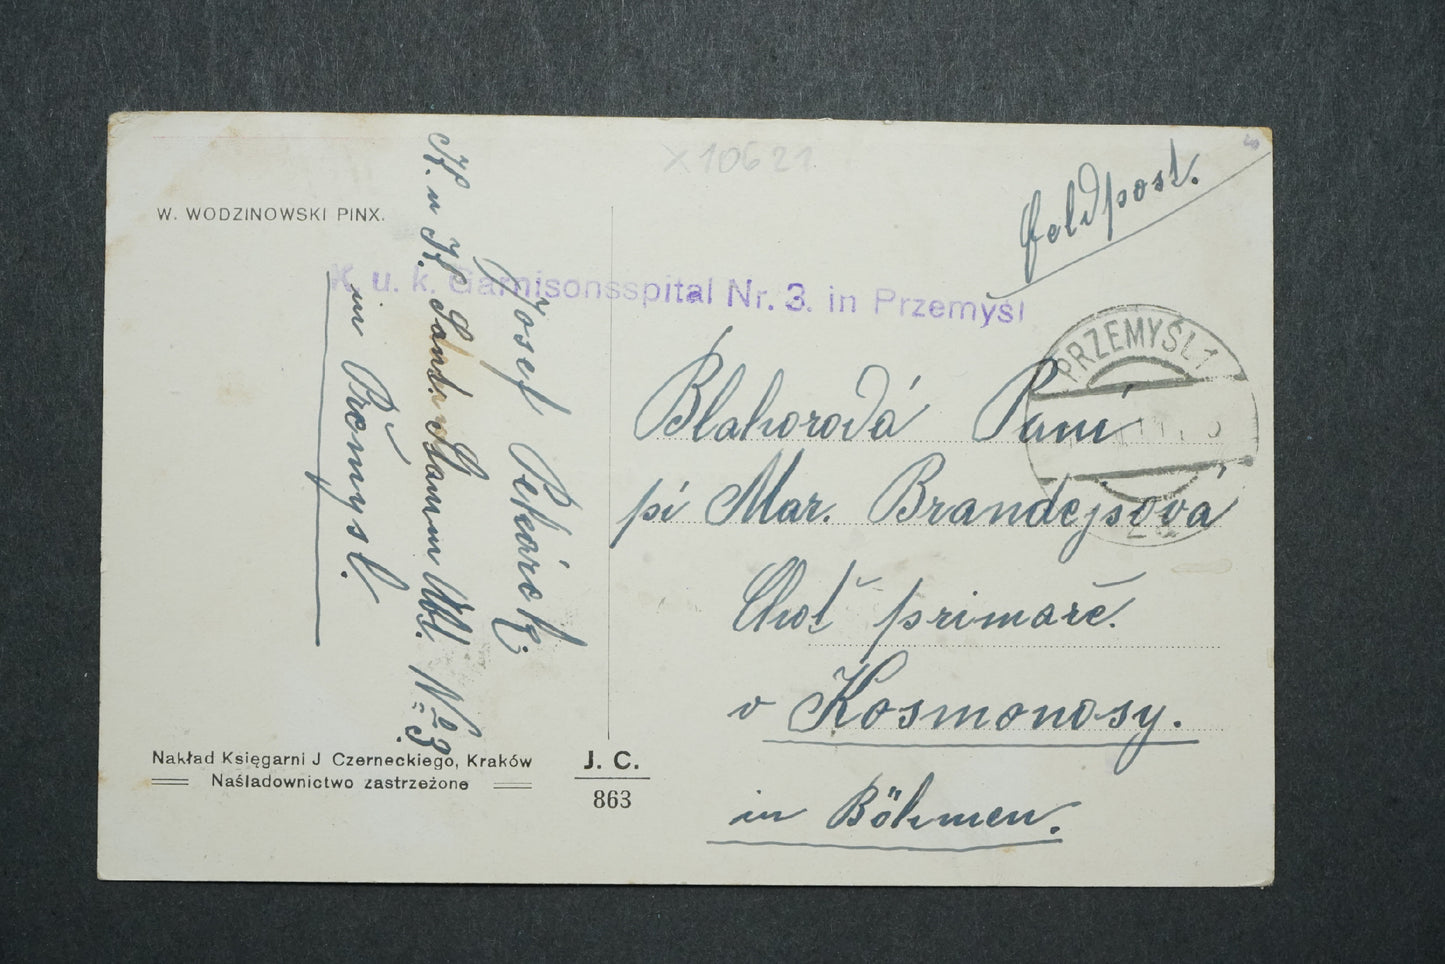 x10621
Feldpost.
W. WODZINOWSKI PINX.
K. u. k. Garnisonsspital Nr. 3. in Przemyśl
PRZEMYŚL 1
Blahorodá Paní
pí Mar. Brandejsová
Choť primáře.
v Kosmonosy.
in Böhmen.
Josef Pekárek;
K. u K. Abt. No 3.
in Přemysl.
Nakład Księgarni J Czerneckiego, Kraków
Naśladownictwo zastrzeżone
J. C.
863